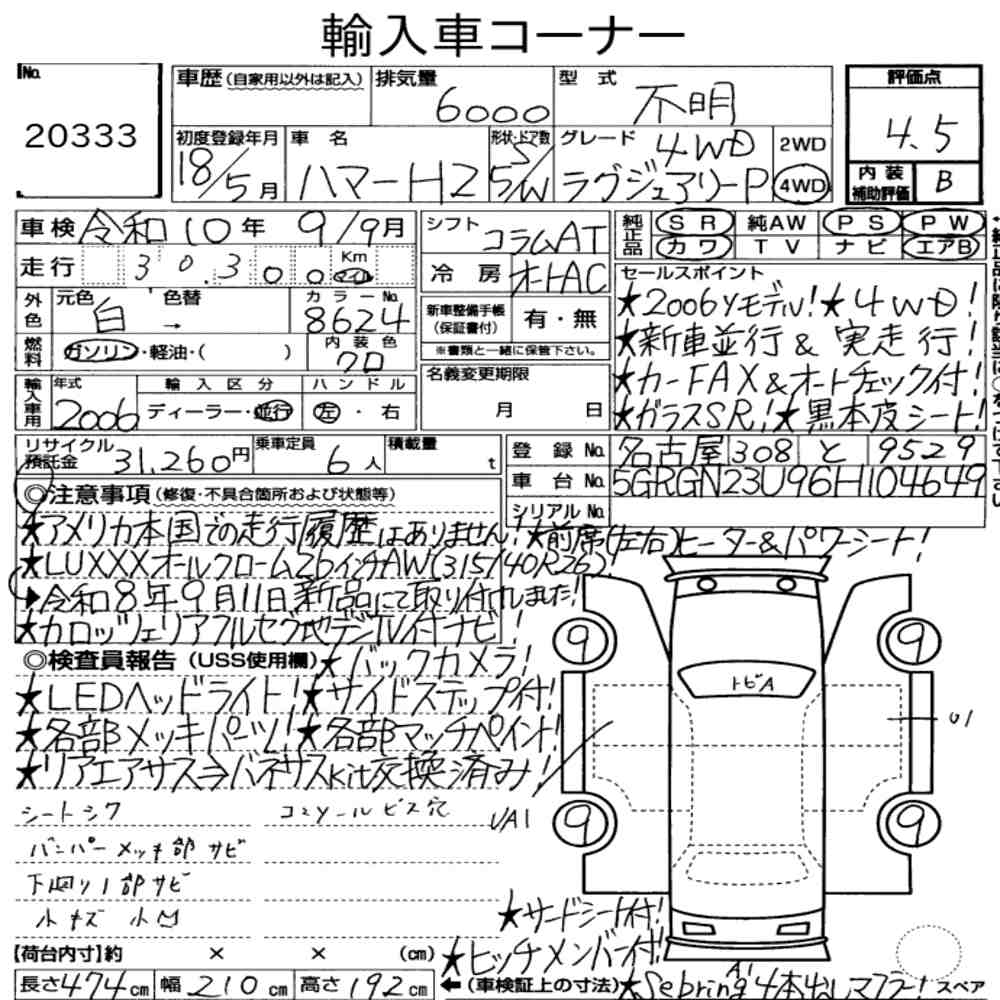 輸入車コーナー
No.
20333
車歴(自家用以外は記入)
排気量
6000
型式
不明
評価点
4.5
初度登録年月
18/5月
車名
ハマーH2
形状・ドア数
5/W
グレード
4WD
ラグジュアリーP
2WD
4WD
内装
補助評価
B
車検 令和10年 9/9月
走行 30,300 Km マイル
シフト
コラムAT
冷房 オートAC
純正品
SR 純AW PS PW
カワ TV ナビ エアB
外色
元色 白 → 色替
カラーNo.
8624
燃料
ガソリン・軽油・( )
内装色
クロ
新車整備手帳
(保証書付)
有・無
※書類と一緒に保管下さい。
セールスポイント
★2006yモデル!★4WD!
★新車並行&実走行!
★カーFAX&オートチェック付!
★ガラスSR!★黒本皮シート!
輸入車用
年式
2006
輸入区分
ディーラー・並行
ハンドル
左・右
名義変更期限
月 日
リサイクル
預託金 31,260円
乗車定員
6人
積載量
t
登録No. 名古屋 308 と 9529
車台No. 5GRGN23U96H104649
シリアルNo.
◎注意事項(修復・不具合箇所および状態等)
★アメリカ本国での走行履歴はありません!★前席(左右)ヒーター&パワーシート!
★LUXXXオールクローム26インチAW(315/40R26)!
▶令和8年9月11日新品にて取り付けしました!
★カロッツェリアフルセグ地デジTV付ナビ!
◎検査員報告(USS使用欄)★バックカメラ!
★LEDヘッドライト!★サイドステップ付!
★各部メッキパーツ!★各部マッチペイント!
★リアエアサス⇒バネサスkit交換済み!
シートシワ
コンソールビス穴
バンパーメッキ部サビ
下回り1部サビ
小キズ 小凹
9
9
トビA
U1
UA1
9
9
★サードシート付!
★ヒッチメンバー付!
A1
【荷台内寸】約 × × (cm)
長さ474cm 幅210cm 高さ192cm
←(車検証上の寸法)★Sebring4本出しマフラー!
スペア